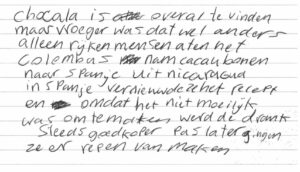 chocala is overal te vinden
maar vroeger was dat wel anders
alleen rijken mensen aten het
colembus nam cacaubonen
naar spanje uit nicaragua
in spanje vernieuwde ze het recept
en omdat het niet moeilijk
was om te maken werd de drank
steeds goedkoper pas later gingen
ze er repen van maken